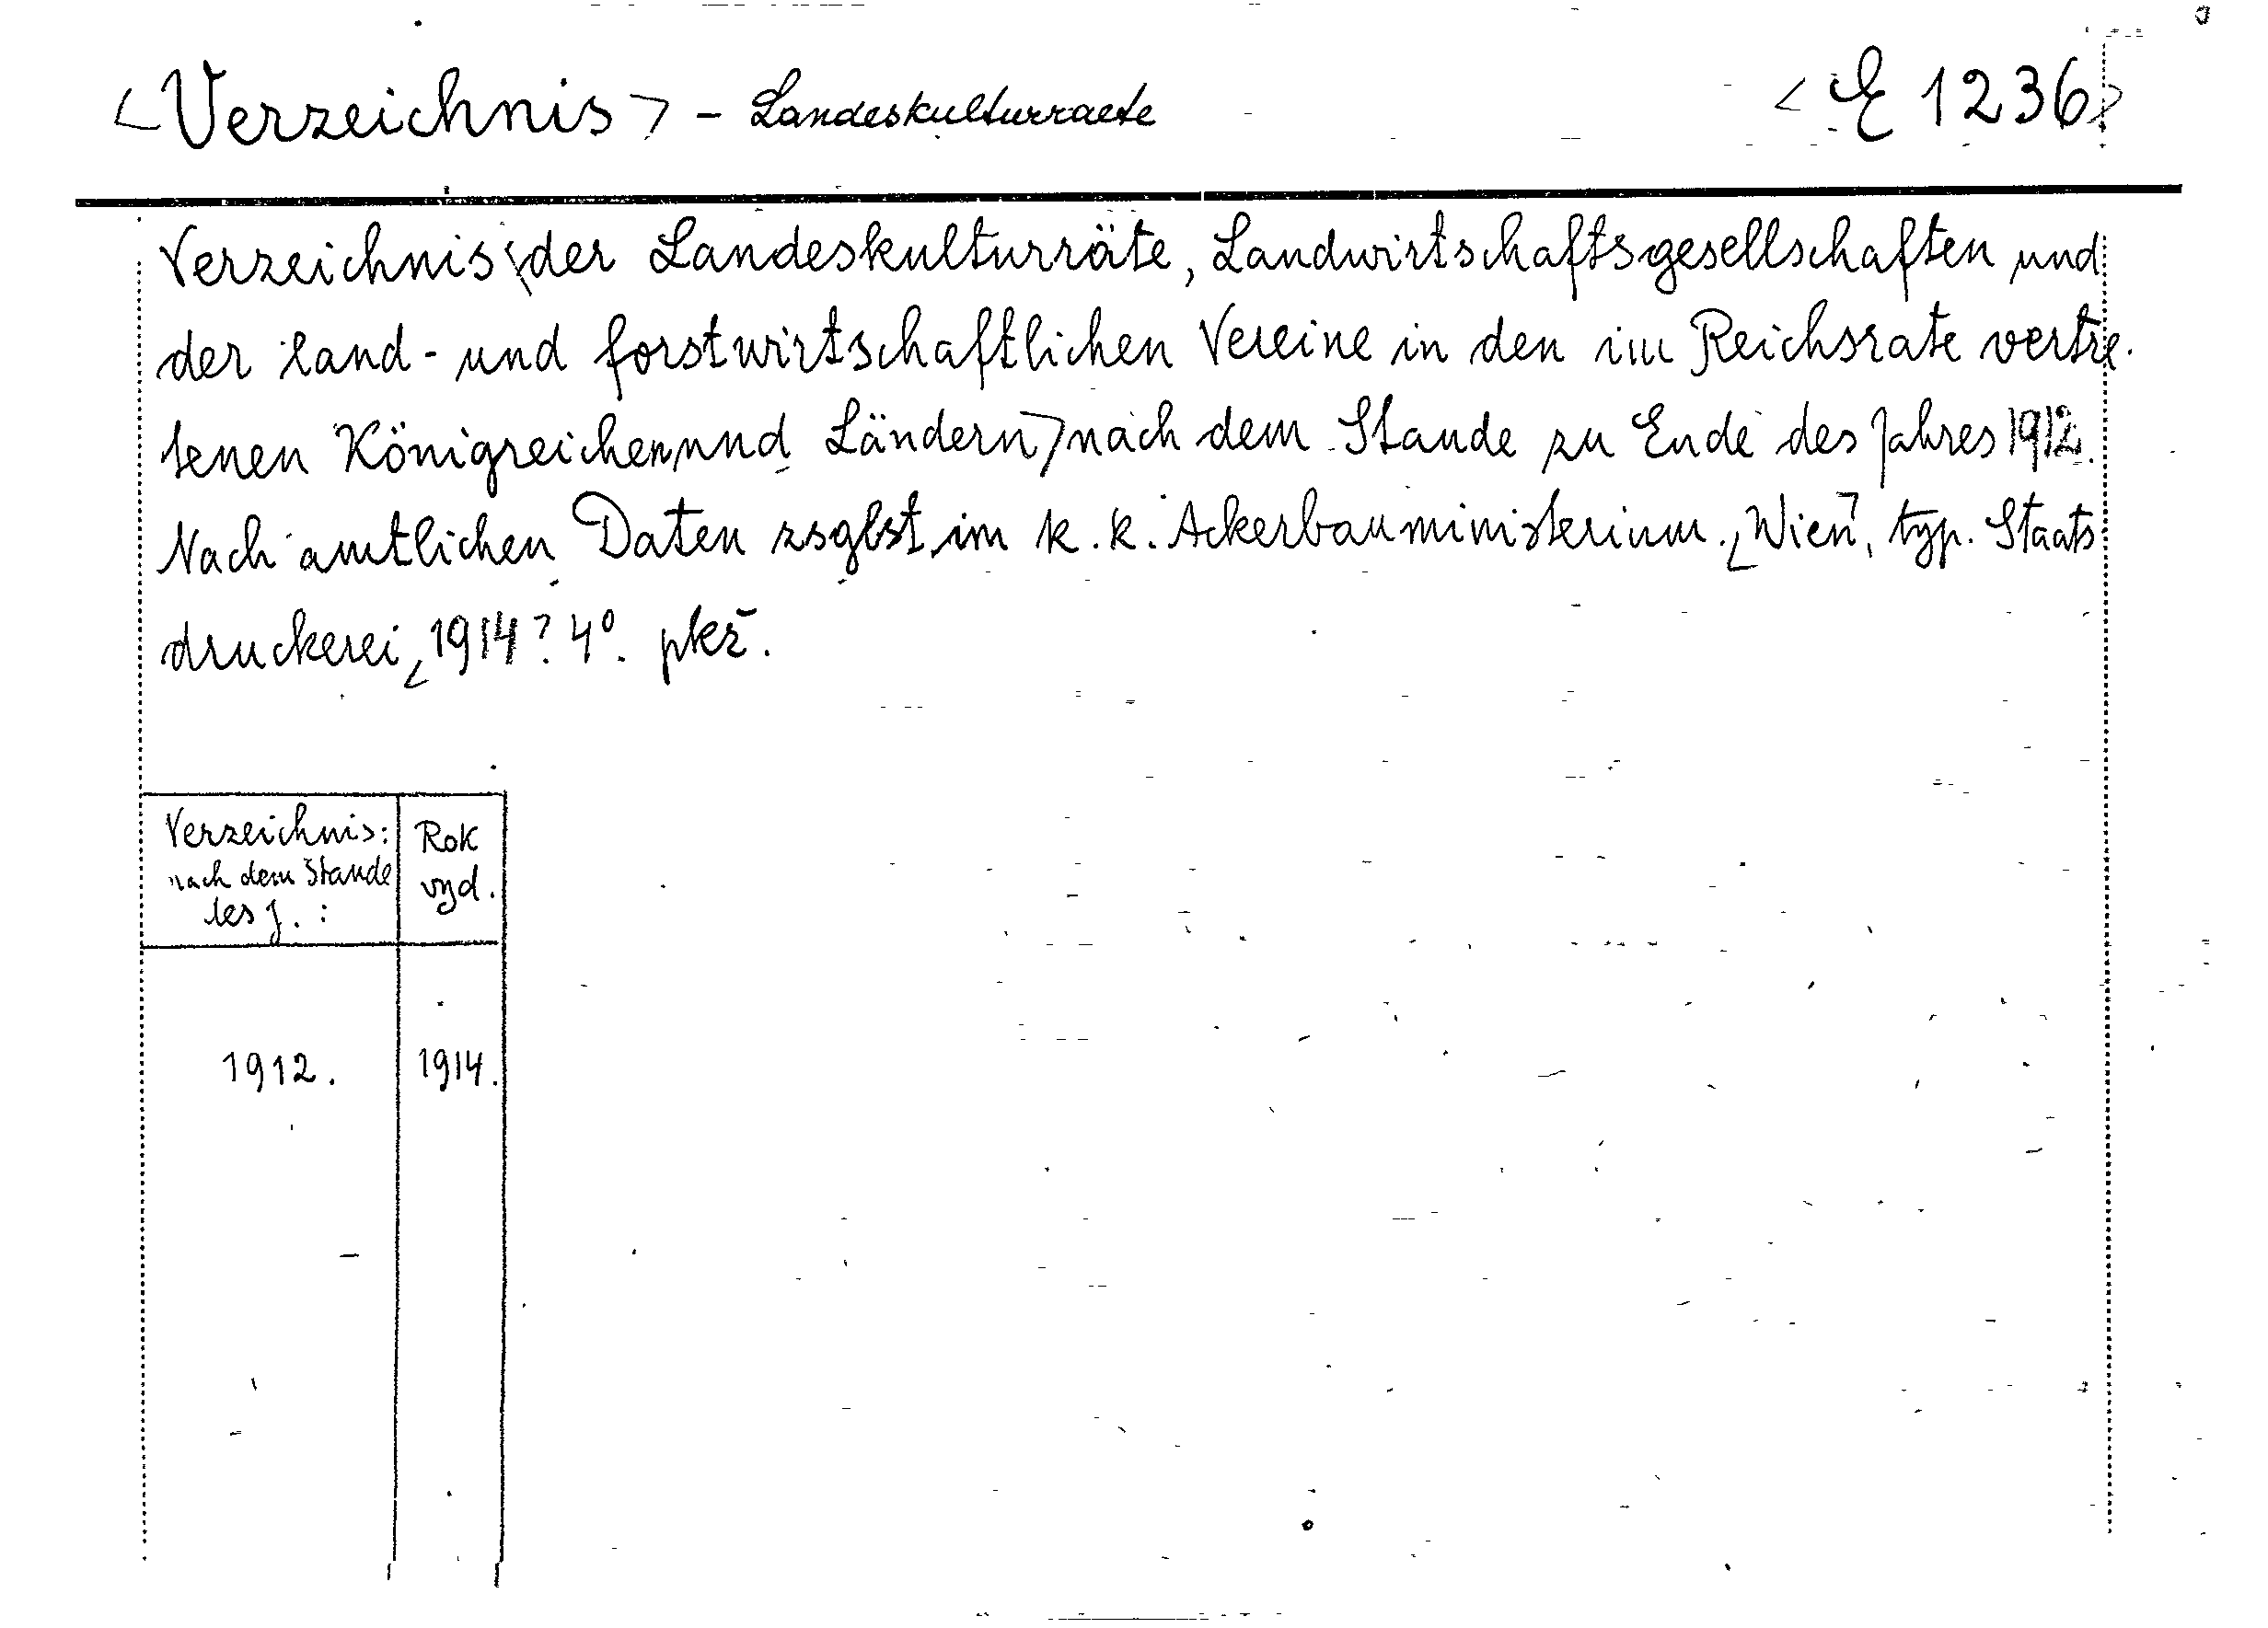 <Verzeichnis> - Landeskulturraete <E 1236>
Verzeichnis <der Landeskulturräte, Landwirtschaftsgesellschaften und
der land- und forstwirtschaftlichen Vereine in den im Reichsrate vertre-
tenen Königreichen und Ländern> nach dem Stande zu Ende des Jahres 1912.
Nach amtlichen Daten zsglst. im k. k. Ackerbauministerium. <Wien>, typ. Staats
druckerei, <1914? 4°. pkž.
Verzeichnis:
nach dem Stande
des J. :
Rok
vyd.
1912. 1914.